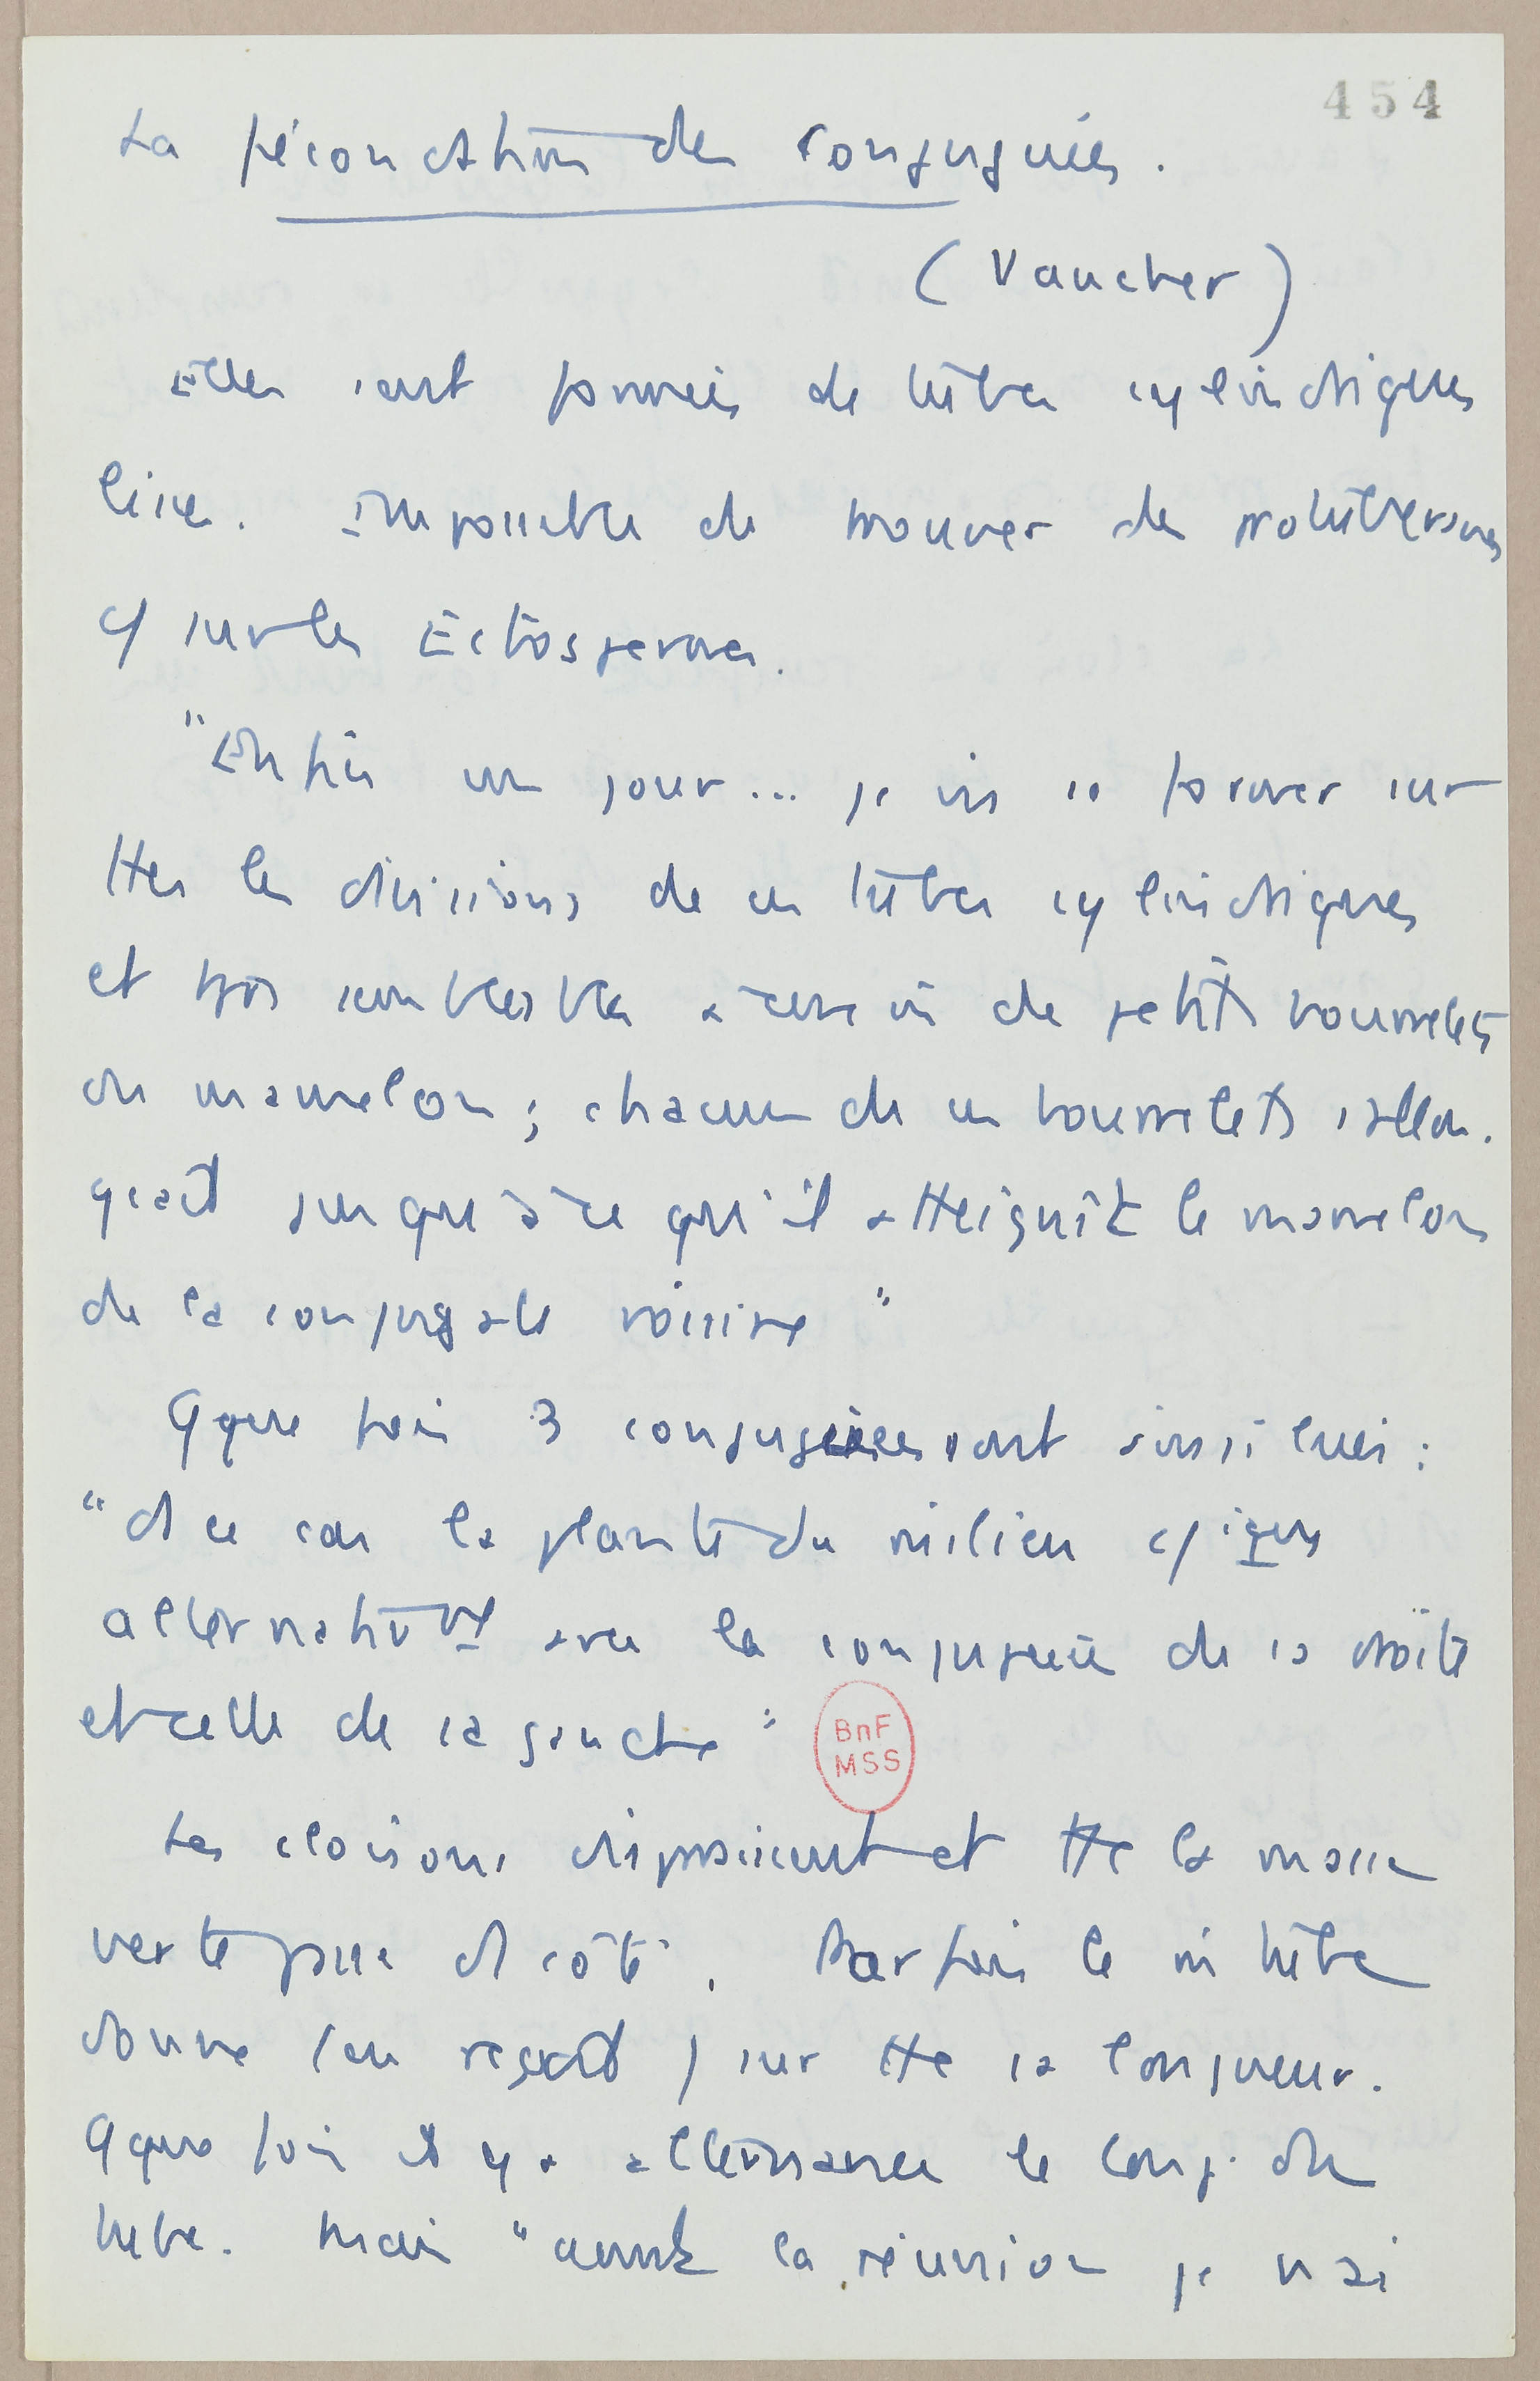 454
La fécondation des conjuguées.
(Vaucher)
Elles sont formées de tubes cylindriques
lisses. Impossible de trouver des protubérances
c/ sur les Ectospermes.
"Enfin un jour... je vis se former sur
ttes les divisions de ces tubes cylindriques
et trps semblables à eux m de petits bourrelets
ou mamelons ; chacun de ces bourrelets s'allon-
geait jusqu'à ce qu'il atteignît le mamelon
de la conjugate voisine"
Qque fois 3 conjuguées sont ainsi liées :
"ds ce cas la plante du milieu c/ique
alternativt avec la conjuguée de sa droite
et celle de sa gauche"
BnF
MSS
Les cloisons disparaissent et tte la masse
verte passe d'1 côté. Parfois le m tube
donne (ou reçoit) sur tte sa longueur.
Qque fois il y a alternance le long du
tube. Mais "avant la réunion je n'ai